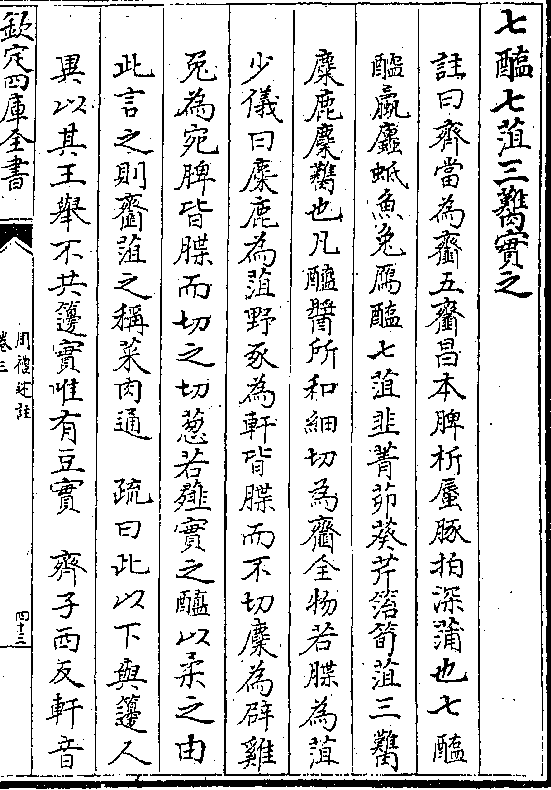 七醢七菹三臡實之
註曰齊當為齏五齏昌本脾析蜃豚拍深蒲也七醢
醓蠃蠯蚳魚兔鴈醢七菹韭菁茆葵芹箈筍菹三臡
麋鹿麇臡也凡醢醬所和細切為齏全物若䐑為菹
少儀曰麋鹿為菹野豕為軒皆䐑而不切麇為辟雞
兔為宛脾皆䐑而切之切葱若薤實之醢以柔之由
此言之則齏菹之稱菜肉通　疏曰此以下與籩人
異以其王舉不共籩實唯有豆實　齊子西反軒音
欽定四庫全書
周禮述註
卷三
四十三